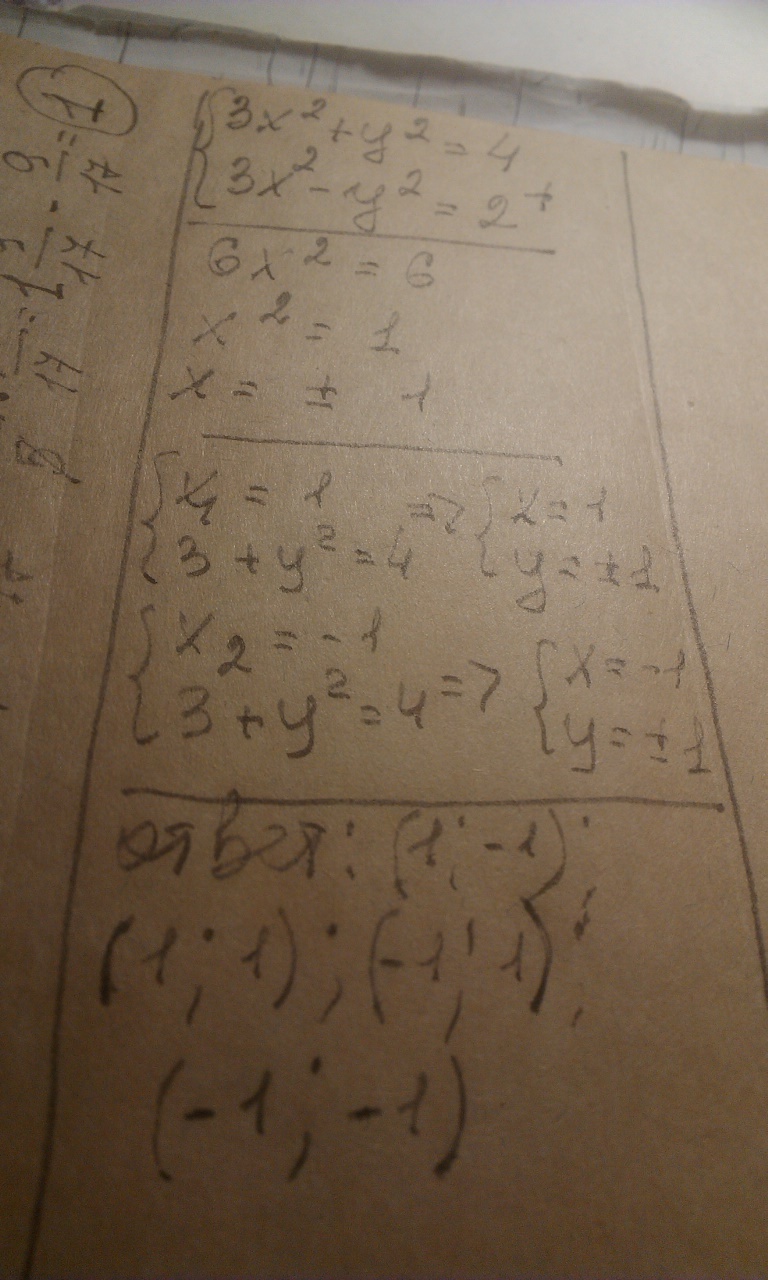 {3x² + y² = 4
{3x² - y² = 2 +
6x² = 6
x² = 1
x = ± 1
{x₁ = 1 => {x = 1
{3 + y² = 4 {y = ±1
{x₂ = -1 => {x = -1
{3 + y² = 4 {y = ±1
ответ: (1; -1);
(1; 1); (-1; 1);
(-1; -1)